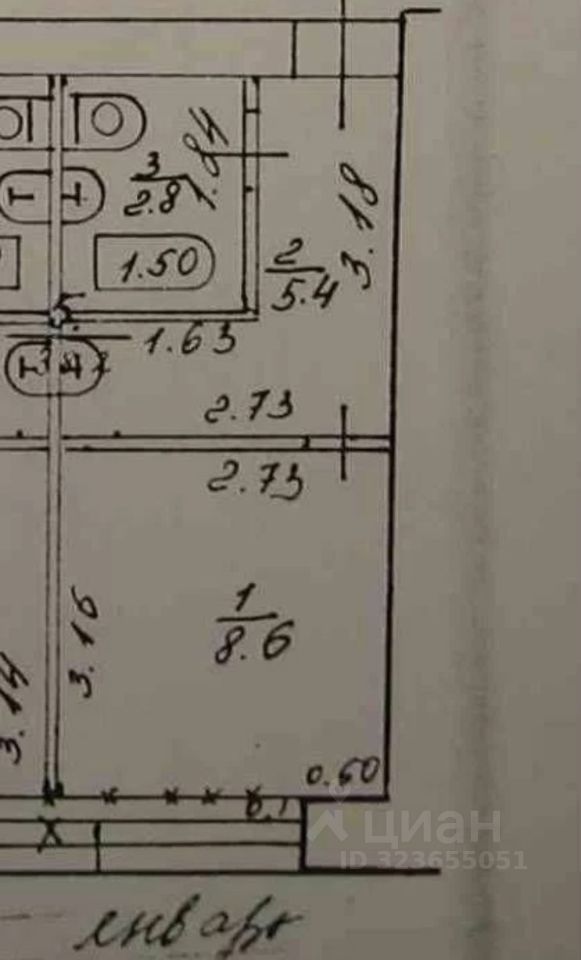 3
2.8
1.84
1.50
2
5.4
3.18
1.63
2.73
2.73
1
8.6
3.16
3.14
0.60
циан
ID 323655051
январь